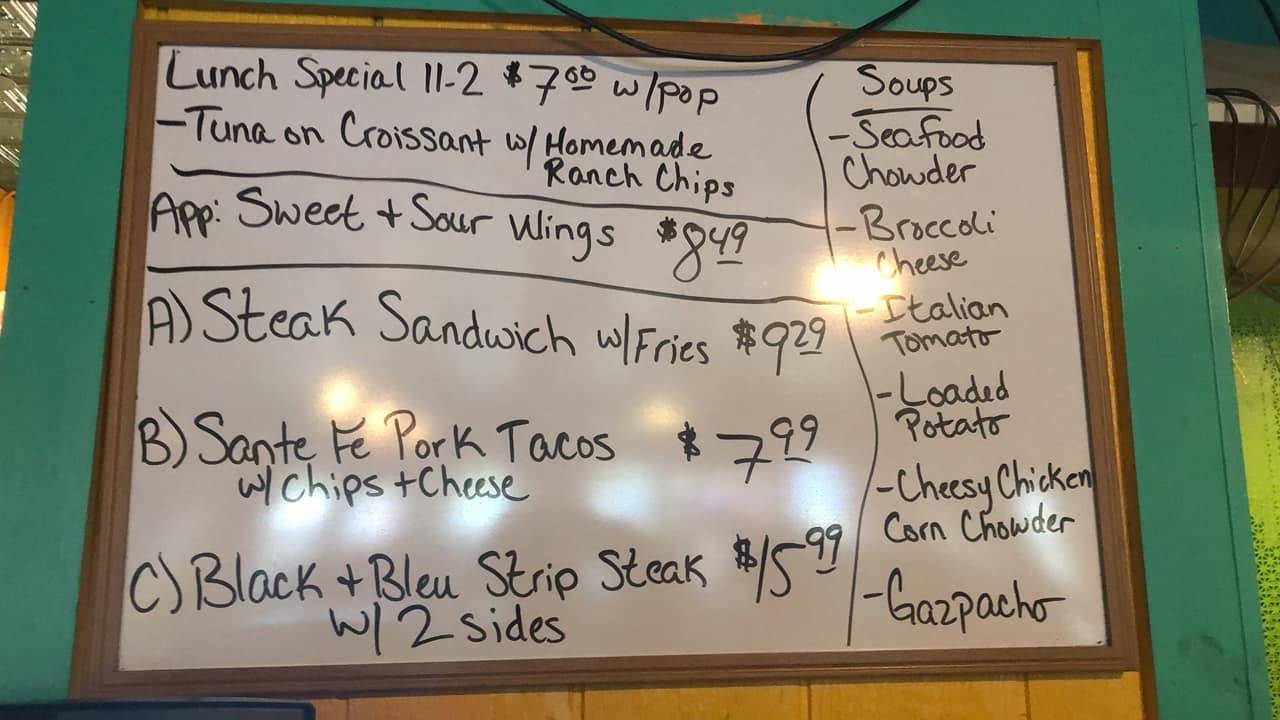 Lunch Special 11-2 $7.00 w/pop
-Tuna on Croissant w/Homemade
Ranch Chips
App: Sweet + Sour Wings $8.49
A) Steak Sandwich w/Fries $9.29
B) Sante Fe Pork Tacos $7.99
w/ Chips + Cheese
C) Black + Bleu Strip Steak $15.99
w/ 2 sides
Soups
-Seafood
Chowder
-Broccoli
Cheese
-Italian
Tomato
-Loaded
Potato
-Cheesy Chicken
Corn Chowder
-Gazpacho